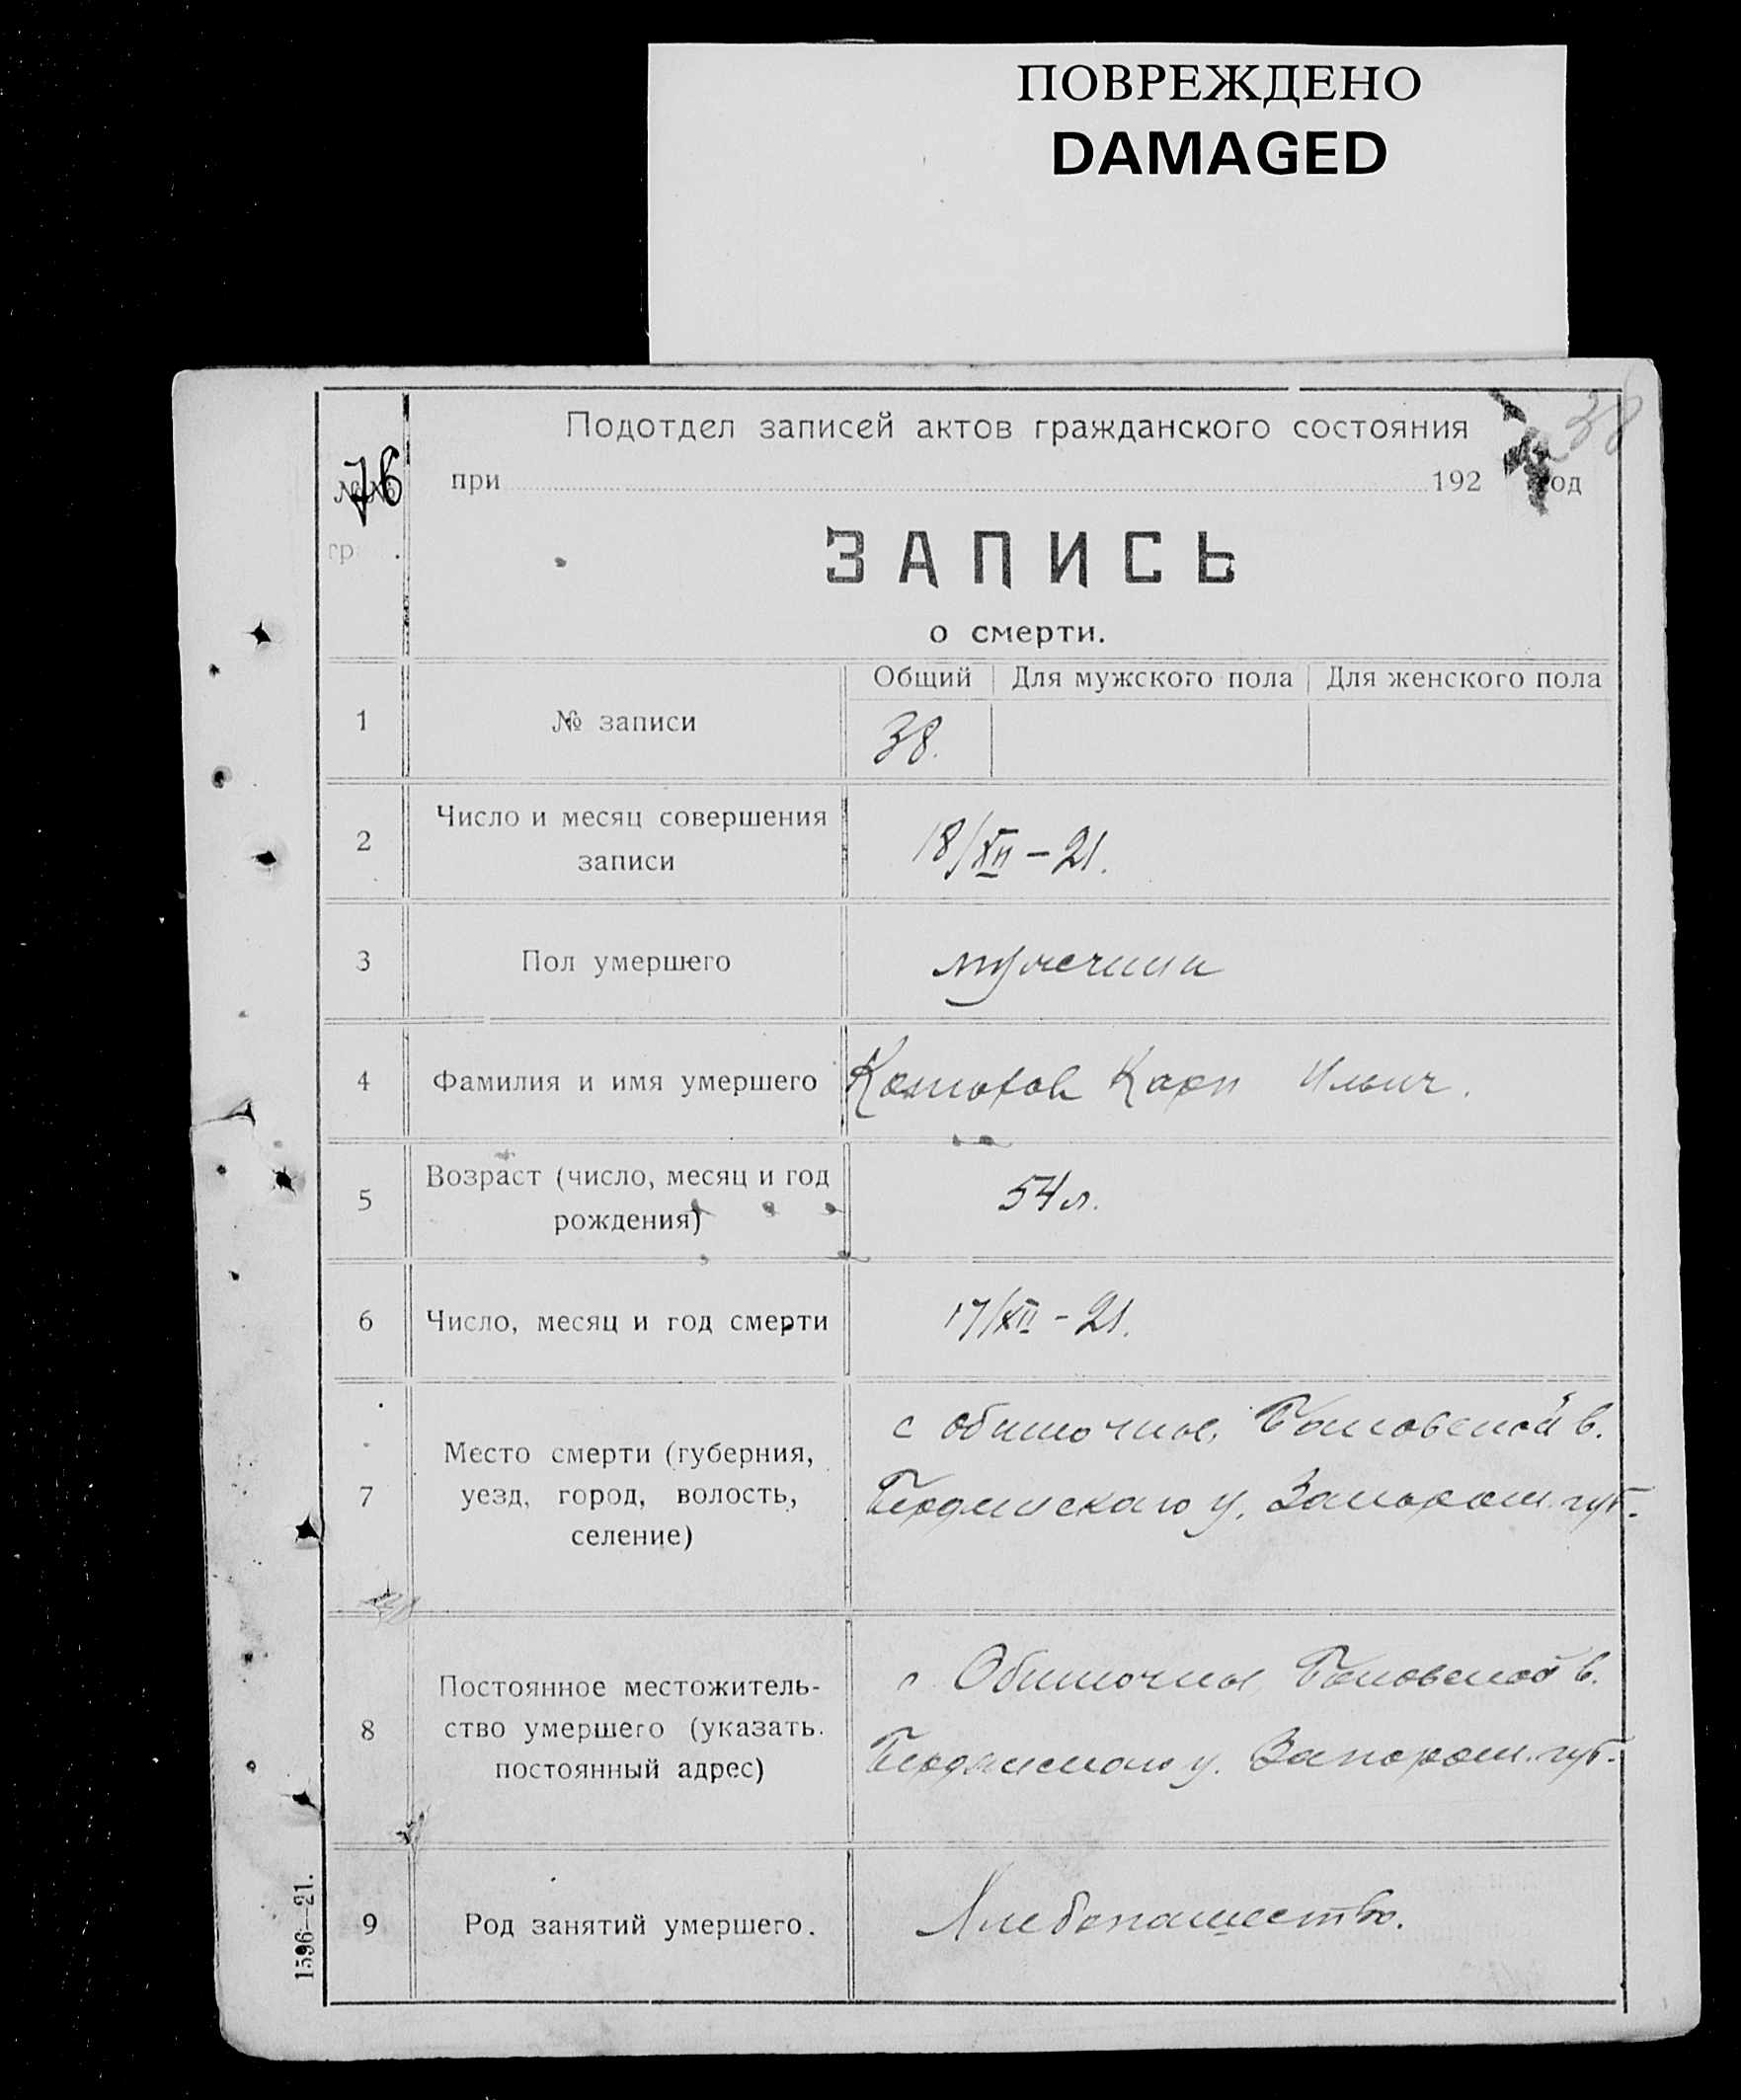 ПОВРЕЖДЕНО
DAMAGED
38
Подотдел записей актов гражданского состояния
76
№№
при 192 год
гр.
ЗАПИСЬ
о смерти.
Общий Для мужского пола Для женского пола
1 № записи 38.
2 Число и месяц совершения
записи
18/XII – 21.
3 Пол умершего мужчина
4 Фамилия и имя умершего Карп Ильич.
5 Возраст (число, месяц и год
рождения)
54 л.
6 Число, месяц и год смерти 17/XII – 21.
7 Место смерти (губерния,
уезд, город, волость,
селение)
с Обиточное, в.
Бердянского у. Запорож. губ.
8 Постоянное местожитель-
ство умершего (указать.
постоянный адрес)
с Обиточное, в.
Бердянского у. Запорож. губ.
9 Род занятий умершего. Хлебопашество.
1596—21.